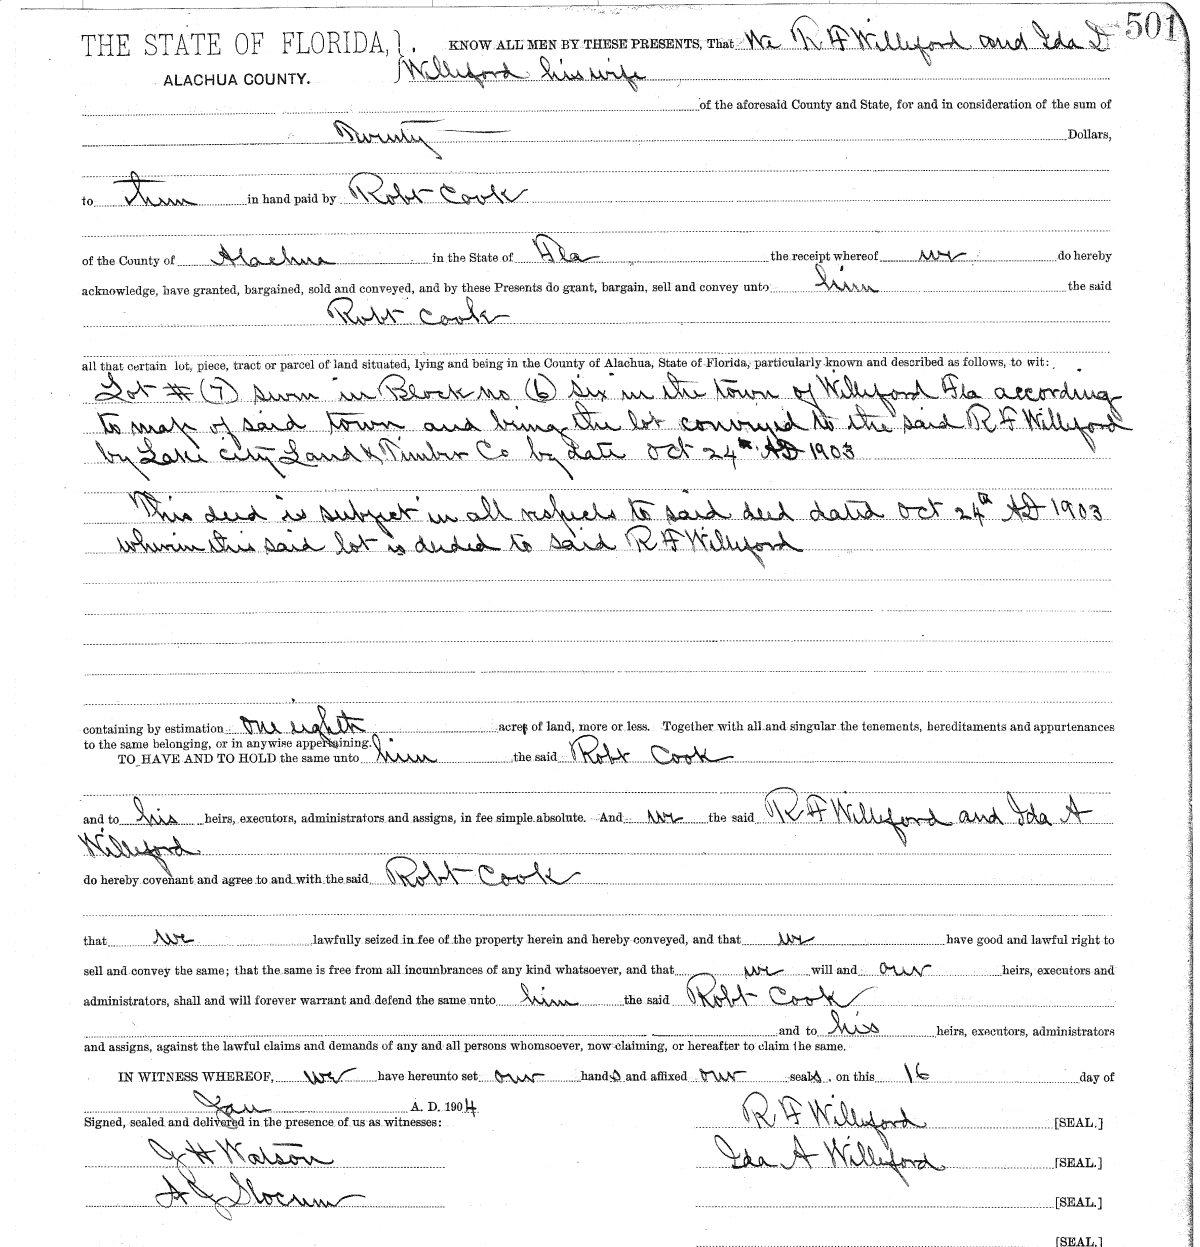 501
THE STATE OF FLORIDA, } . KNOW ALL MEN BY THESE PRESENTS, That We R F Williford and Ida D
ALACHUA COUNTY. Williford his wife
of the aforesaid County and State, for and in consideration of the sum of
Twenty Dollars,
to them in hand paid by Robt Cook
of the County of Alachua in the State of Fla the receipt whereof we do hereby
acknowledge, have granted, bargained, sold and conveyed, and by these Presents do grant, bargain, sell and convey unto him the said
Robt Cook
all that certain lot, piece, tract or parcel of land situated, lying and being in the County of Alachua, State of Florida, particularly known and described as follows, to wit:
Lot # (7) seven in Block no (6) six in the town of Williford Fla according
to map of said town and being the lot conveyed to the said R F Williford
by Lake City Land & Timber Co by date Oct 24th AD 1903
This deed is subject in all respects to said deed dated Oct 24th AD 1903
wherein this said lot is deeded to said R F Williford
containing by estimation one eighth acres of land, more or less. Together with all and singular the tenements, hereditaments and appurtenances
to the same belonging, or in anywise appertaining.
TO HAVE AND TO HOLD the same unto him the said Robt Cook
and to his heirs, executors, administrators and assigns, in fee simple absolute. And we the said R F Williford and Ida A
Williford
do hereby covenant and agree to and with the said Robt Cook
that we lawfully seized in fee of the property herein and hereby conveyed, and that we have good and lawful right to
sell and convey the same; that the same is free from all incumbrances of any kind whatsoever, and that we will and our heirs, executors and
administrators, shall and will forever warrant and defend the same unto him the said Robt Cook
and to his heirs, executors, administrators
and assigns, against the lawful claims and demands of any and all persons whomsoever, now claiming, or hereafter to claim the same.
IN WITNESS WHEREOF, we have hereunto set our hands and affixed our seals, on this 16 day of
Jan A. D. 1904
Signed, sealed and delivered in the presence of us as witnesses: R F Williford [SEAL.]
J H Watson Ida A Williford [SEAL.]
A J Slocum [SEAL.]
[SEAL.]